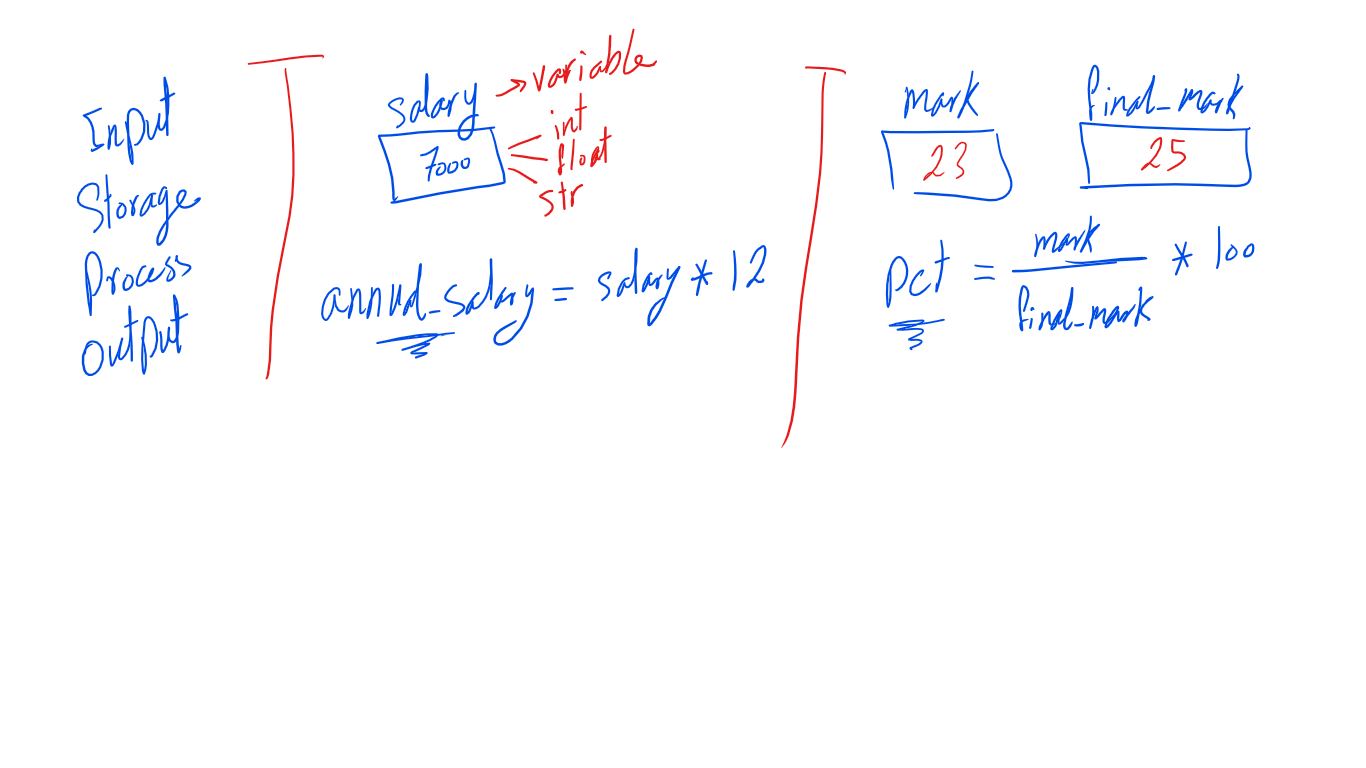 Input
Storage
Process
Output
salary → variable
7000
int
float
str
annual_salary = salary * 12
mark
23
final_mark
25
pct = mark / final_mark * 100